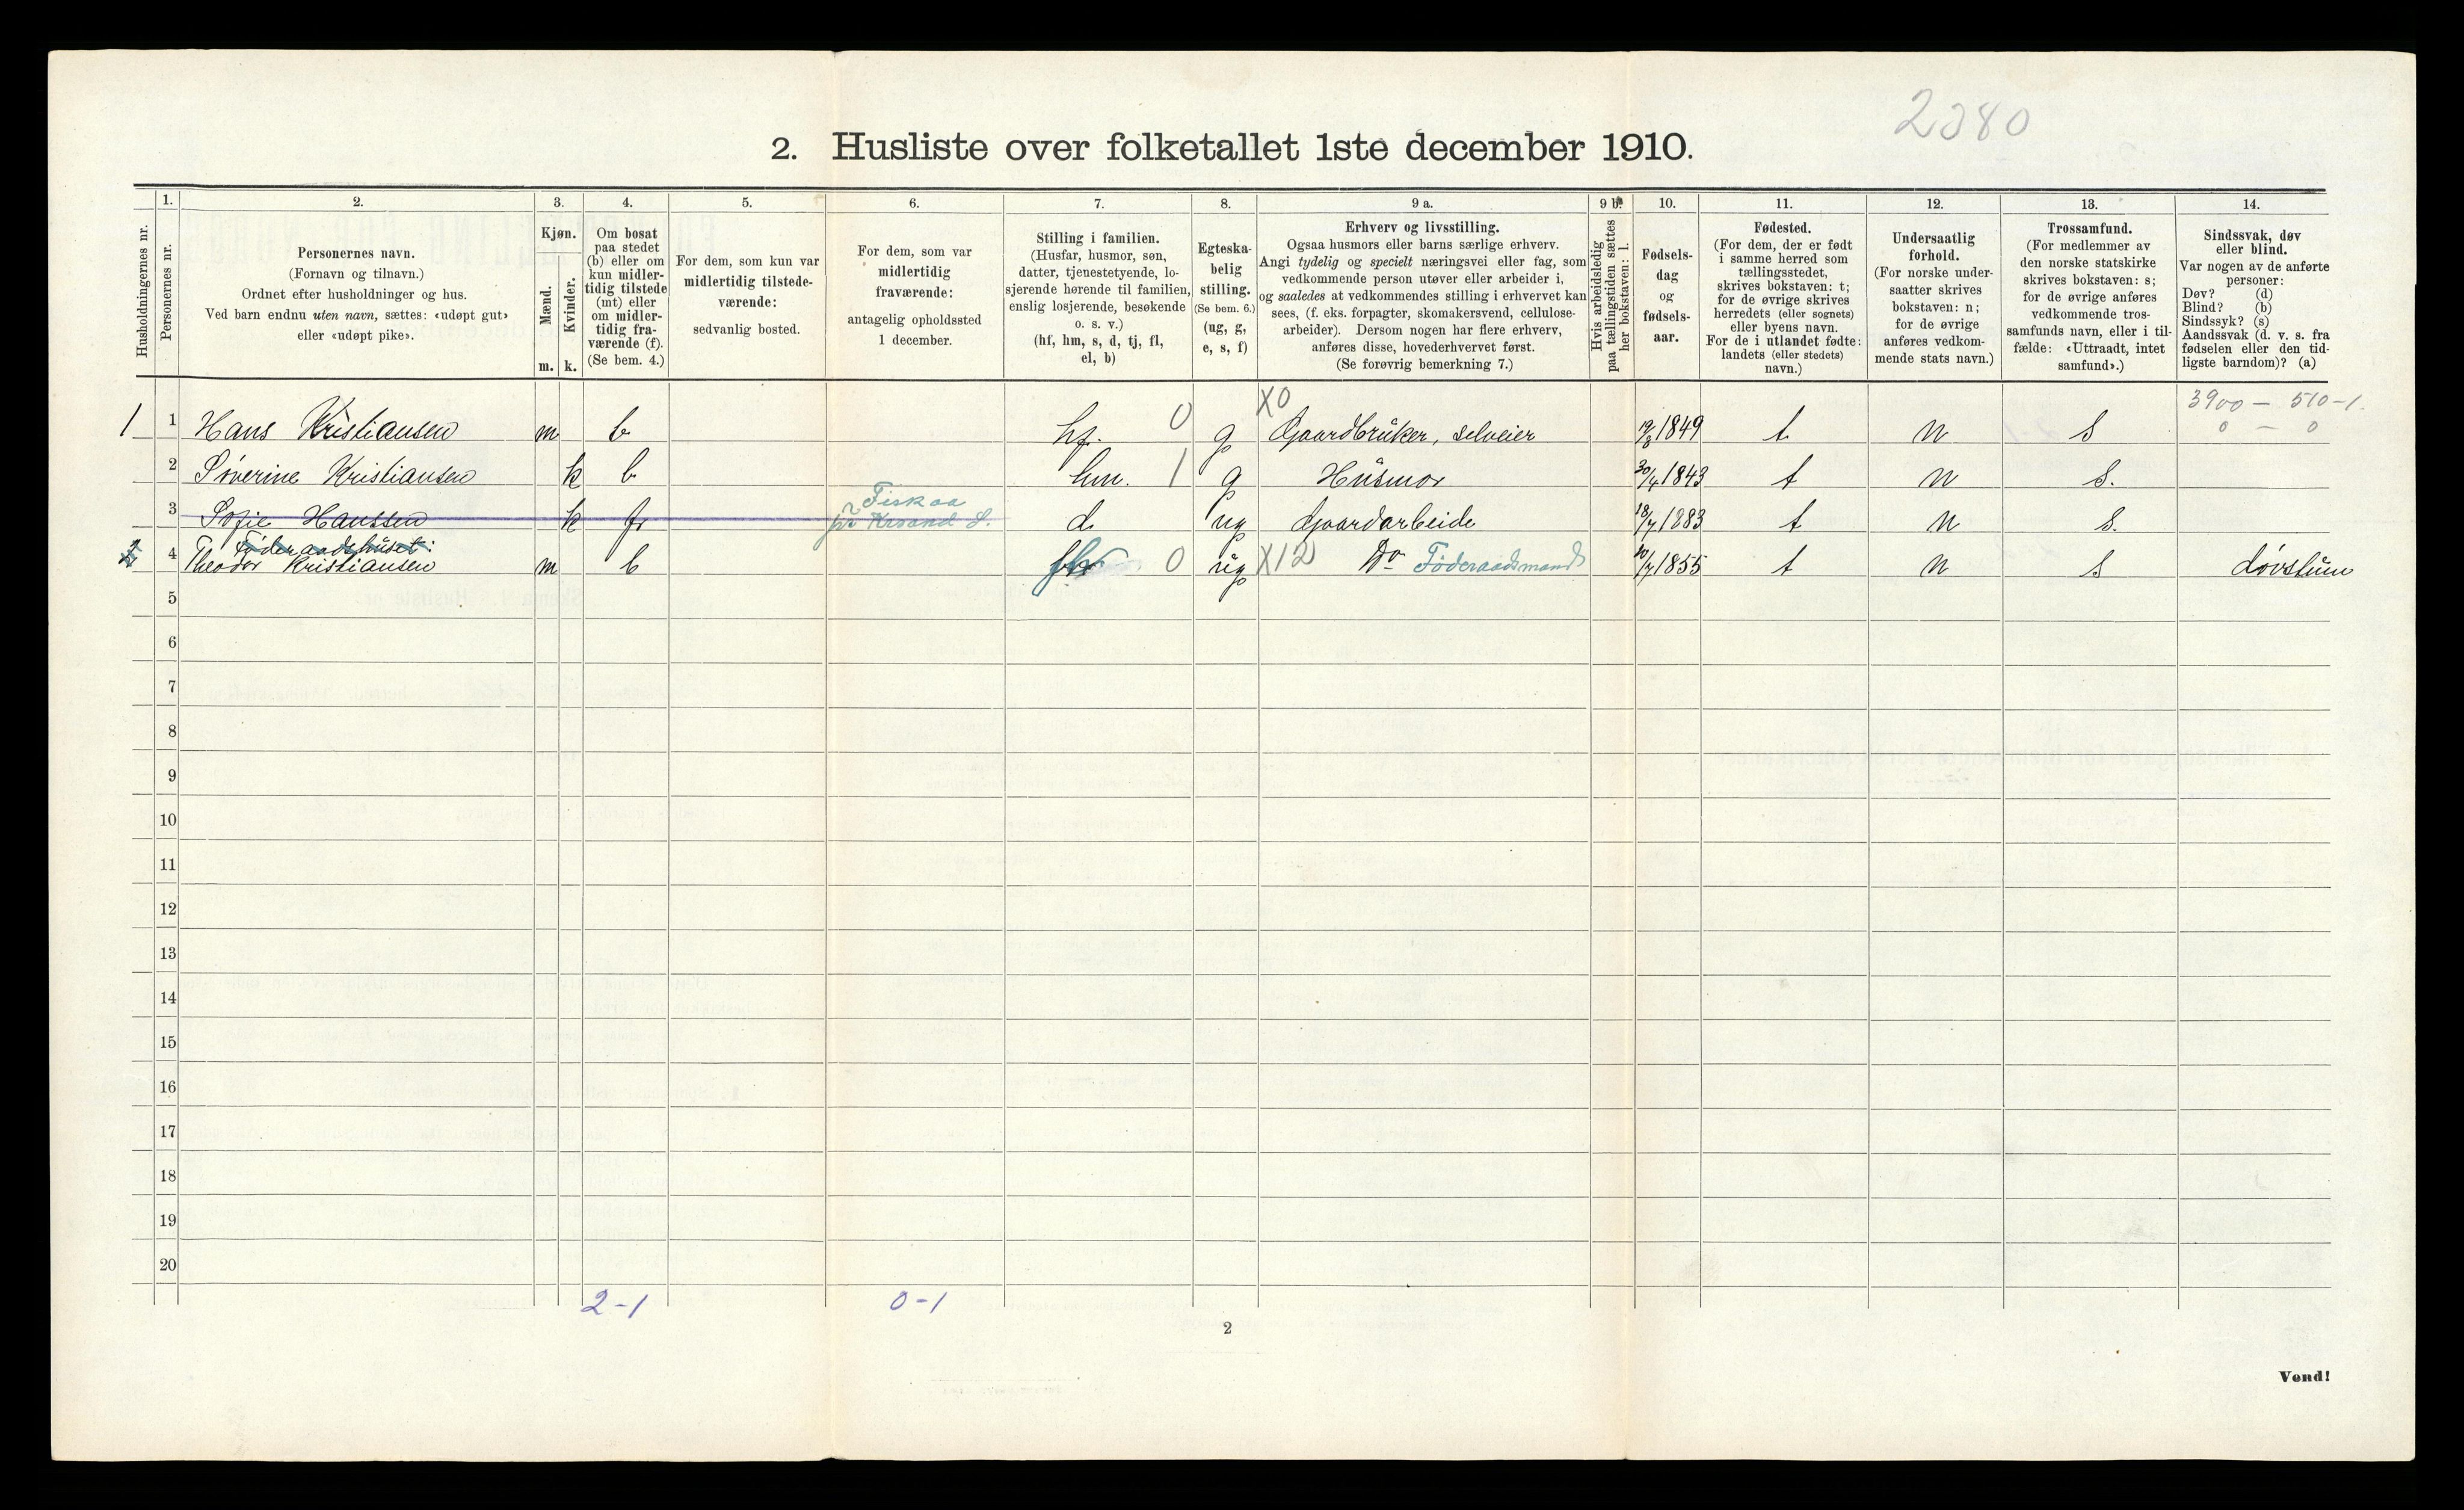 2380
2. Husliste over folketallet 1ste december 1910.
Husholdningernes nr.
1.
Personernes nr.
2.
Personernes navn.
(Fornavn og tilnavn.)
Ordnet efter husholdninger og hus.
Ved barn endnu uten navn, sættes: «udøpt gut»
eller «udøpt pike».
3.
Kjøn.
Mænd.
Kvinder.
m. k.
4.
Om bosat
paa stedet
(b) eller om
kun midler-
tidig tilstede
(mt) eller
om midler-
tidig fra-
værende (f).
(Se bem. 4.)
5.
For dem, som kun var
midlertidig tilstede-
værende:
sedvanlig bosted.
6.
For dem, som var
midlertidig
fraværende:
antagelig opholdssted
1 december.
7.
Stilling i familien.
(Husfar, husmor, søn,
datter, tjenestetyende, lo-
sjerende hørende til familien,
enslig losjerende, besøkende
o. s. v.)
(hf, hm, s, d, tj, fl,
el, b)
8.
Egteska-
belig
stilling.
(Se bem. 6.)
(ug, g,
e, s, f)
9 a.
Erhverv og livsstilling.
Ogsaa husmors eller barns særlige erhverv.
Angi tydelig og specielt næringsvei eller fag, som
vedkommende person utøver eller arbeider i,
og saaledes at vedkommendes stilling i erhvervet kan
sees, (f. eks. forpagter, skomakersvend, cellulose-
arbeider). Dersom nogen har flere erhverv,
anføres disse, hovederhvervet først.
(Se forøvrig bemerkning 7.)
9 b.
Hvis arbeidsledig
paa tællingstiden sættes
her bokstaven: l.
10.
Fødsels-
dag
og
fødsels-
aar.
11.
Fødested.
(For dem, der er født
i samme herred som
tællingsstedet,
skrives bokstaven: t;
for de øvrige skrives
herredets (eller sognets)
eller byens navn.
For de i utlandet fødte:
landets (eller stedets)
navn.)
12.
Undersaatlig
forhold.
(For norske under-
saatter skrives
bokstaven: n;
for de øvrige
anføres vedkom-
mende stats navn.)
13.
Trossamfund.
(For medlemmer av
den norske statskirke
skrives bokstaven: s;
for de øvrige anføres
vedkommende tros-
samfunds navn, eller i til-
fælde: «Uttraadt, intet
samfund».)
14.
Sindssvak, døv
eller blind.
Var nogen av de anførte
personer:
Døv? (d)
Blind? (b)
Sindssyk? (s)
Aandssvak (d. v. s. fra
fødselen eller den tid-
ligste barndom)? (a)
3900 - 510-1.
0 - 0
1 1 Hans Kristiansen m b hf. 0 g X0 Gaardbruker, selveier 19/8 1849 t n s
2 Søverine Kristiansen k b hm. 1 g Husmor 30/4 1843 t n s.
Fiskaa
3 Sofie Hanssen k fr pr Krsand S. d ug Gaardarbeide 18/7 1883 t n s.
Føderaadshuset:
4 Theodor Kristiansen m b 0 ug X12 Do Føderaadsmand 10/7 1855 t n s døvstum
5
6
7
8
9
10
11
12
13
14
15
16
17
18
19
20
2-1 0-1
2
Vend!